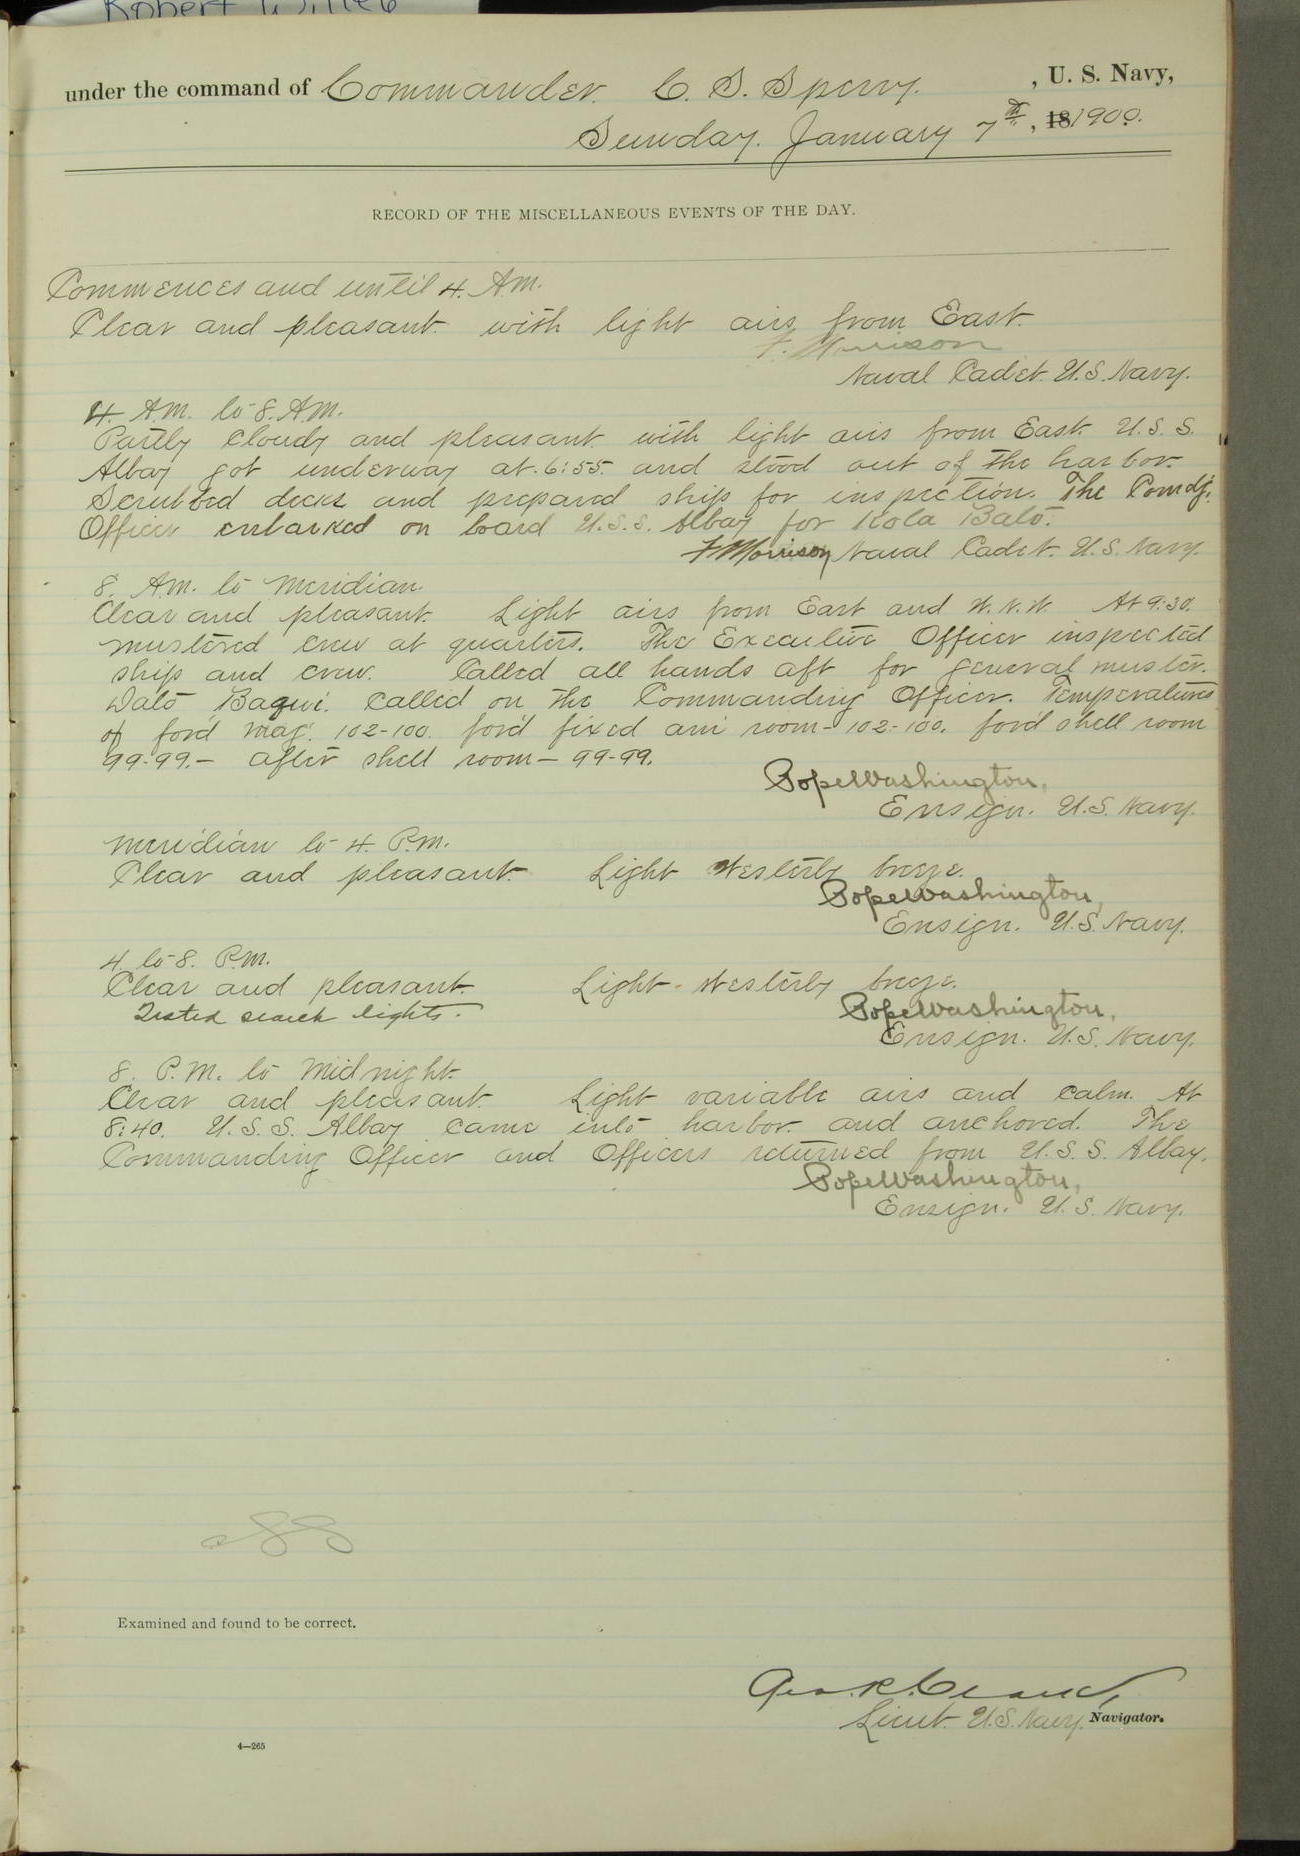 Robert Willeb
under the command of Commander. C. S. Sperry. , U. S. Navy,
Sunday. January 7th., 181900.
RECORD OF THE MISCELLANEOUS EVENTS OF THE DAY.
Commences and until 4. A.M.
Clear and pleasant. with light airs from East.
F. Morrison
Naval Cadet. U.S. Navy.
4. A.M. to 8. A.M.
Partly cloudy and pleasant. with light airs from East. U. S. S.
Albay got underway at. 6:55. and stood out of the harbor.
Scrubbed decks and prepared ship for inspection. The Comdg.
Officer embarked on board U.S.S. Albay for Kota Bato.
F Morrison Naval Cadet. U.S. Navy.
8. A.M. to Meridian.
Clear and pleasant. Light airs from East and W.N.W. At 9:30.
mustered crew at quarters. The Executive Officer inspected
ship and crew. Called all hands aft for general muster.
Dato Baqui. called on the Commanding Officer. Temperatures
of for'd mag. 102-100. for'd fixed am room- 102-100. for'd shell room
99-99.- after shell room- 99-99.
Pope Washington,
Ensign. U.S. Navy.
Meridian to 4. P.M.
Clear and pleasant. Light Westerly breeze.
Pope Washington,
Ensign. U.S. Navy.
4 to 8. P.M.
Clear and pleasant. Light. Westerly breeze.
Tested search lights.
Pope Washington,
Ensign. U.S. Navy.
8. P.M. to Midnight.
Clear and pleasant. Light variable airs and calm. At
8:40. U.S.S. Albay came into harbor. and anchored. The
Commanding Officer and Officers returned from U.S.S. Albay.
Pope Washington,
Ensign. U.S. Navy.
Examined and found to be correct.
Lieut. U.S. Navy. Navigator.
4—265